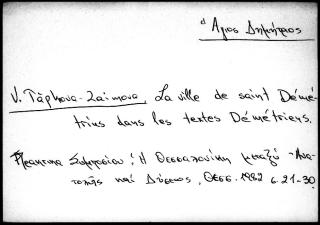 Άγιος Δημήτριος
V. Tăpkova-Zaimova, La ville de saint Démé-
trius dans les textes Démétriens,
Πρακτικά Συμποσίου: Η Θεσσαλονίκη μεταξύ Ανα-
τολής και Δύσεως, Θεσσ. 1982 σ. 21-30